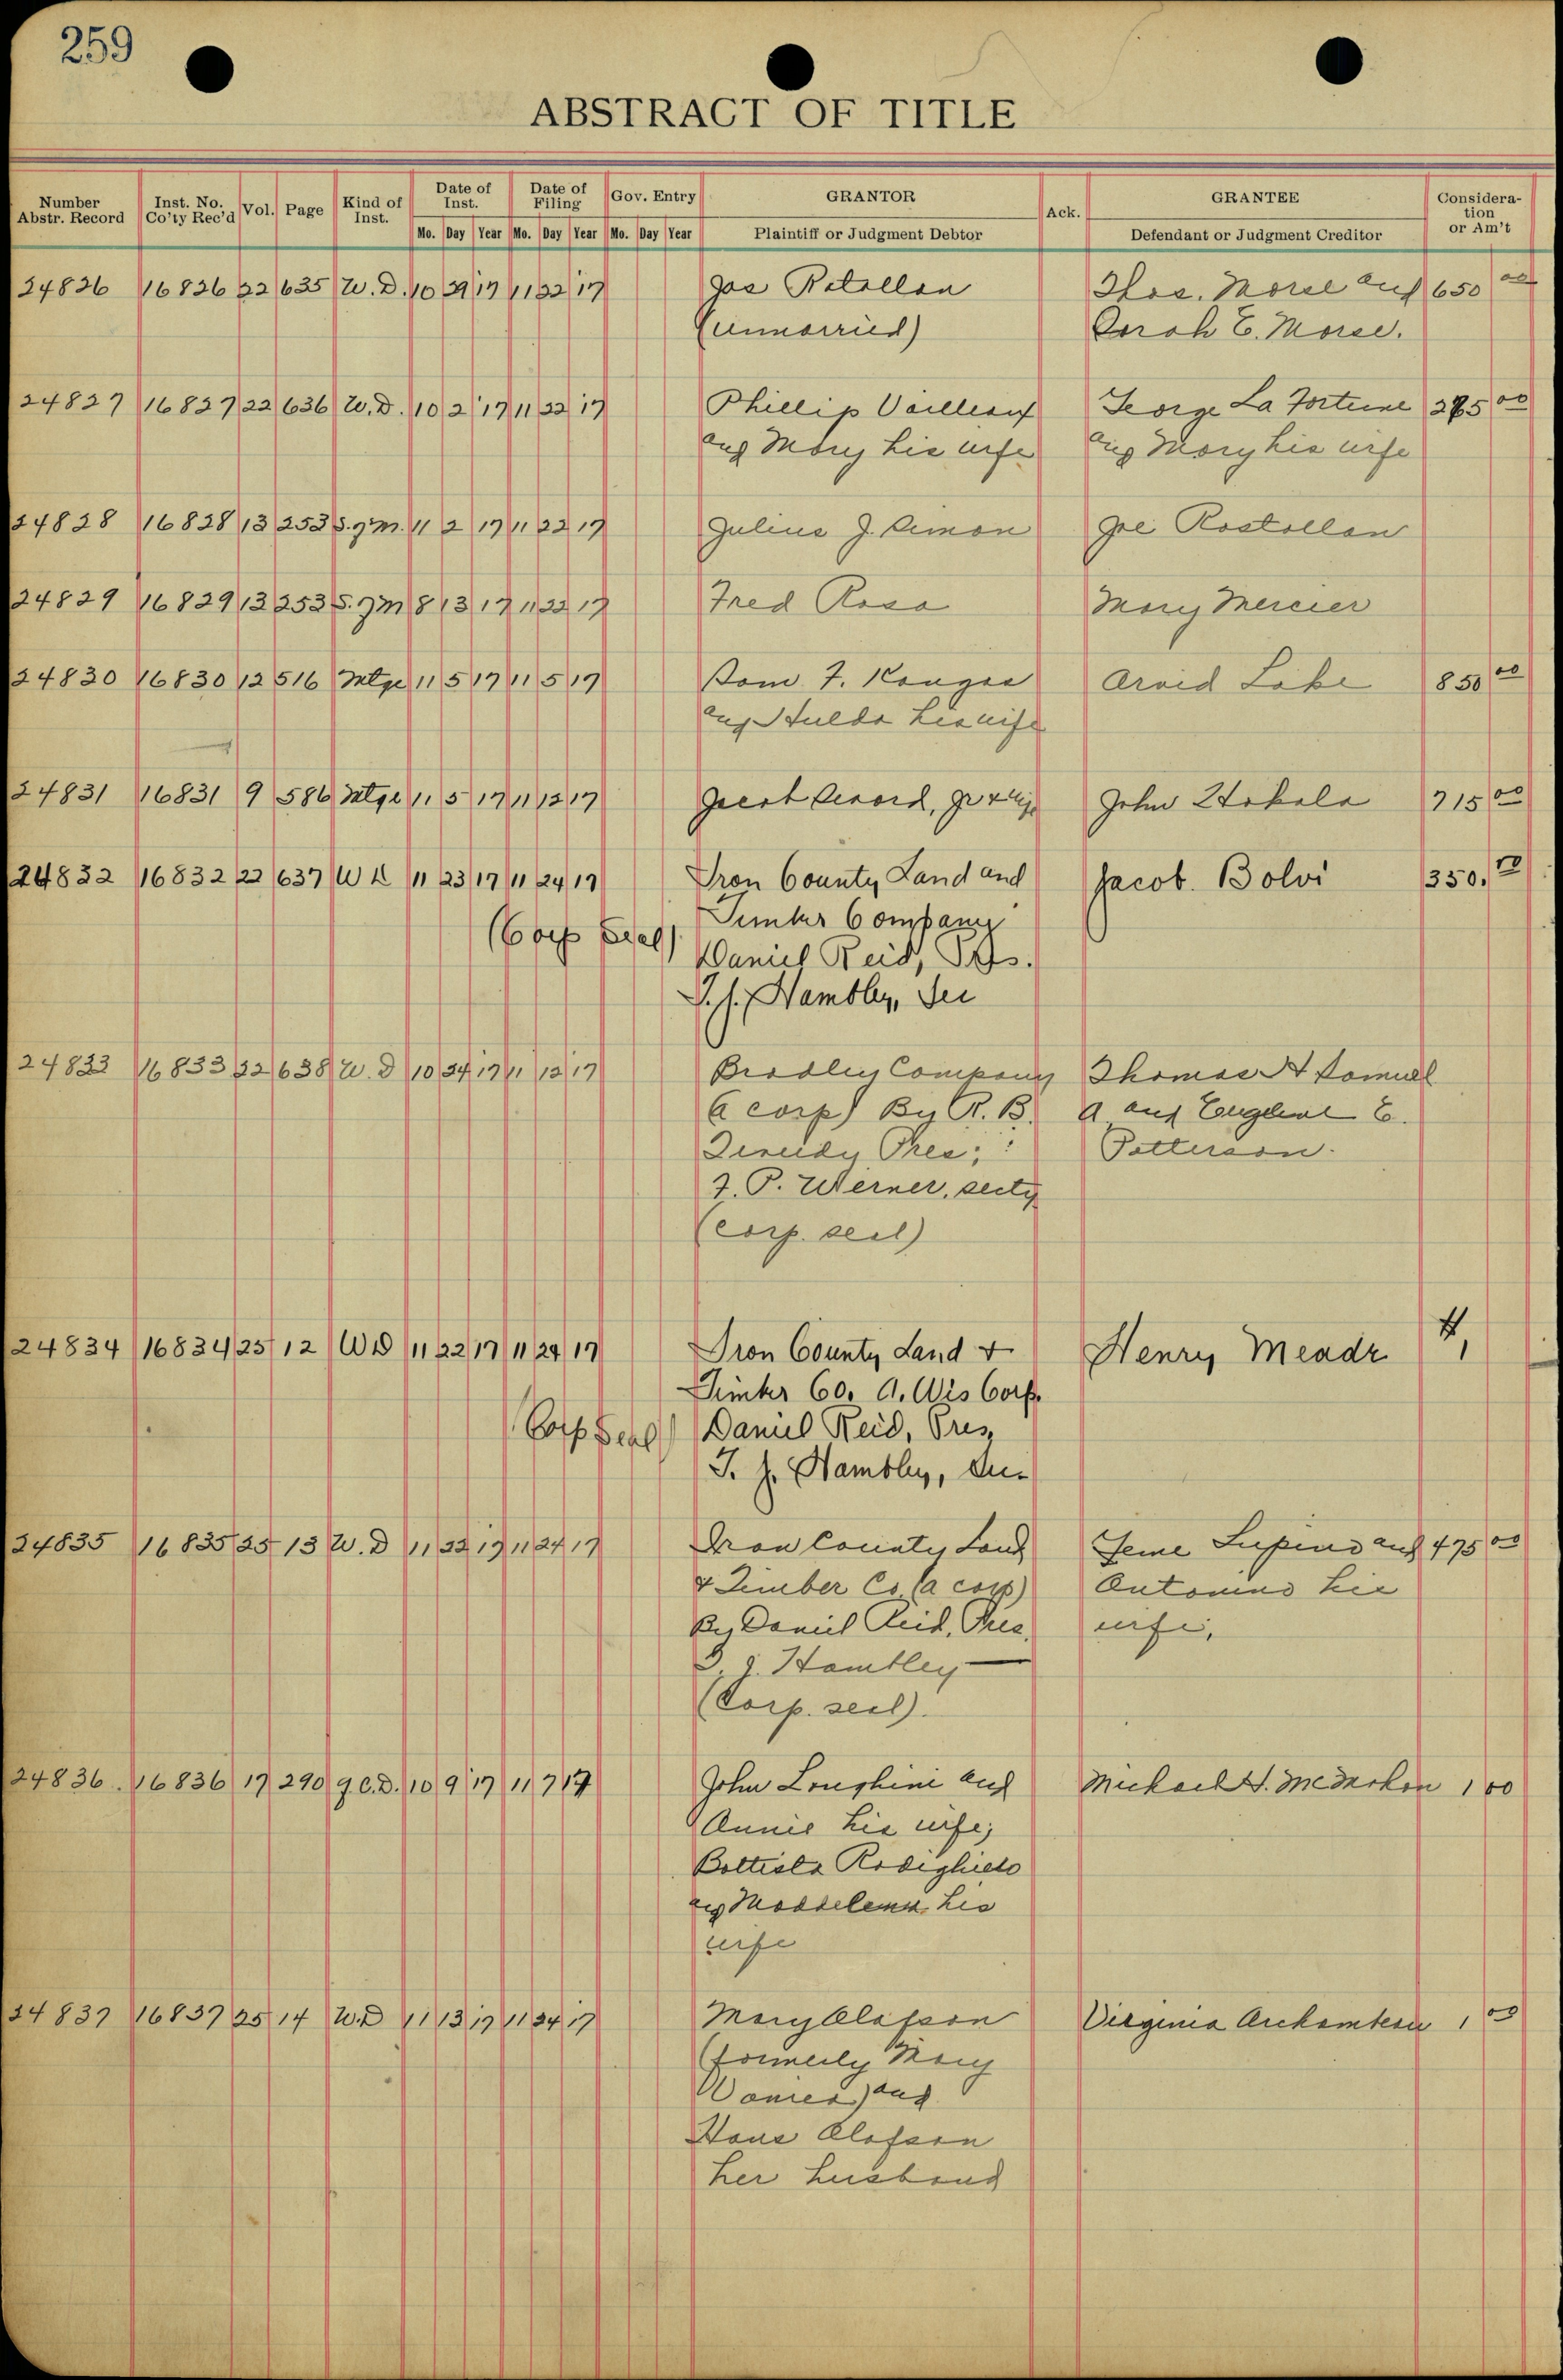 259
ABSTRACT OF TITLE
Number Abstr. Record Inst. No. Co'ty Rec'd Vol. Page Kind of Inst. Date of Inst. Date of Filing Gov. Entry GRANTOR Ack. GRANTEE Consideration or Am't
Mo. Day Year Mo. Day Year Mo. Day Year Plaintiff or Judgment Debtor Defendant or Judgment Creditor
24826 16826 22 635 W. D. 10 29 17 11 22 17 Jos Thos. Morse and 650 00
(unmarried) Sarah E. Morse.
24827 16827 22 636 W. D. 10 2 17 11 22 17 Phillip George La Fortune 00
and Mary his wife and Mary his wife
24828 16828 13 253 11 2 17 11 22 17 Julius J. Simon Joe Rostollan
24829 16829 13 253 8 13 17 11 22 17 Fred Rosa Mary Mercier
24830 16830 12 516 Mtge 11 5 17 11 5 17 Sam F. Kangas Arvid Lake 850 00
and Hulda his wife
24831 16831 9 586 Mtge 11 5 17 11 12 17 John 715 00
24832 16832 22 637 W D 11 23 17 11 24 17 Iron County Land and Jacob. Bolvi 350.00
Timber Company
(Corp Seal) Daniel Reid, Pres.
Hambley, Sec
24833 16833 22 638 W. D 10 24 17 11 12 17 Bradley Company Thomas H Samuel
(a corp) By R. B. A and E.
Pres; Patterson.
F. P. Werner, secty
(corp. seal)
24834 16834 25 12 WD 11 22 17 11 24 17 Iron County Land + Henry Meade 1,
Timber Co. A. Wis Corp.
(Corp Seal) Daniel Reid, Pres,
J. Hambley, Sec.
24835 16835 25 13 W. D 11 22 17 11 24 17 Iron County Land Lupino and 475 00
& Timber Co. (a corp) Antonino his
By Daniel Reid, Pres. wife,
J. Hambley
(Corp. seal).
24836. 16836 17 290 Q.C.D. 10 9 17 11 7 17 John Longhini and Michael H. McMahon 1 00
Annie his wife;
Battista Rodighiero
and Maddelena his
wife
24837 16837 25 14 W.D 11 13 17 11 24 17 Mary Olafson Virginia Archambeau 1 00
(formerly Mary
and
Hans Olafson
her husband